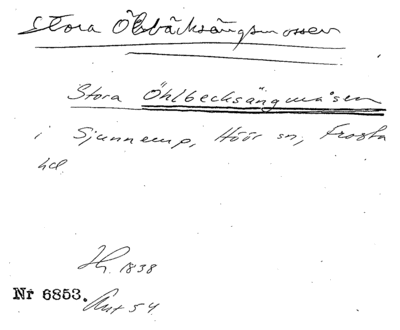 Stora Ölbäcksängsmossen
Stora Öhlbecksängmåsen
i Sjunnerup, Höör sn, Frosta
hd.
Jh. 1838
Nr 6853. Akt 54